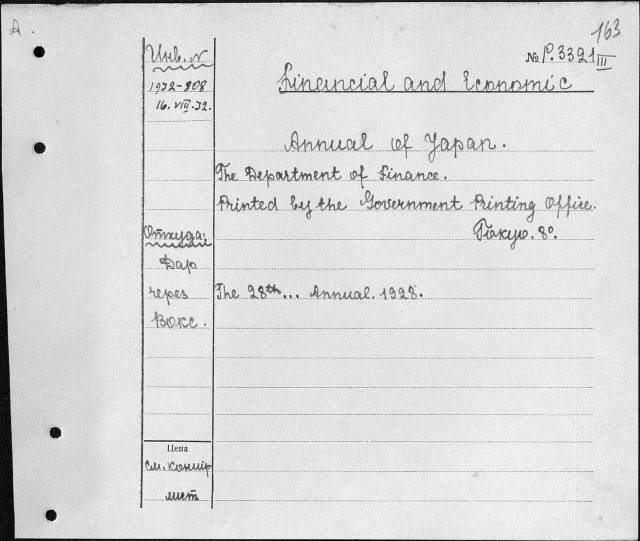 A.
163
Инв. N
№ P.3321 III
Financial and Economic
1932-208
16.VIII.32.
Annual of Japan.
The Department of Finance.
Printed by the Government Printing Office.
Tokyo. 8°.
Откуда:
Дар
через
Вокс.
The 28th... Annual. 1928.
Цена
см. контр
лист